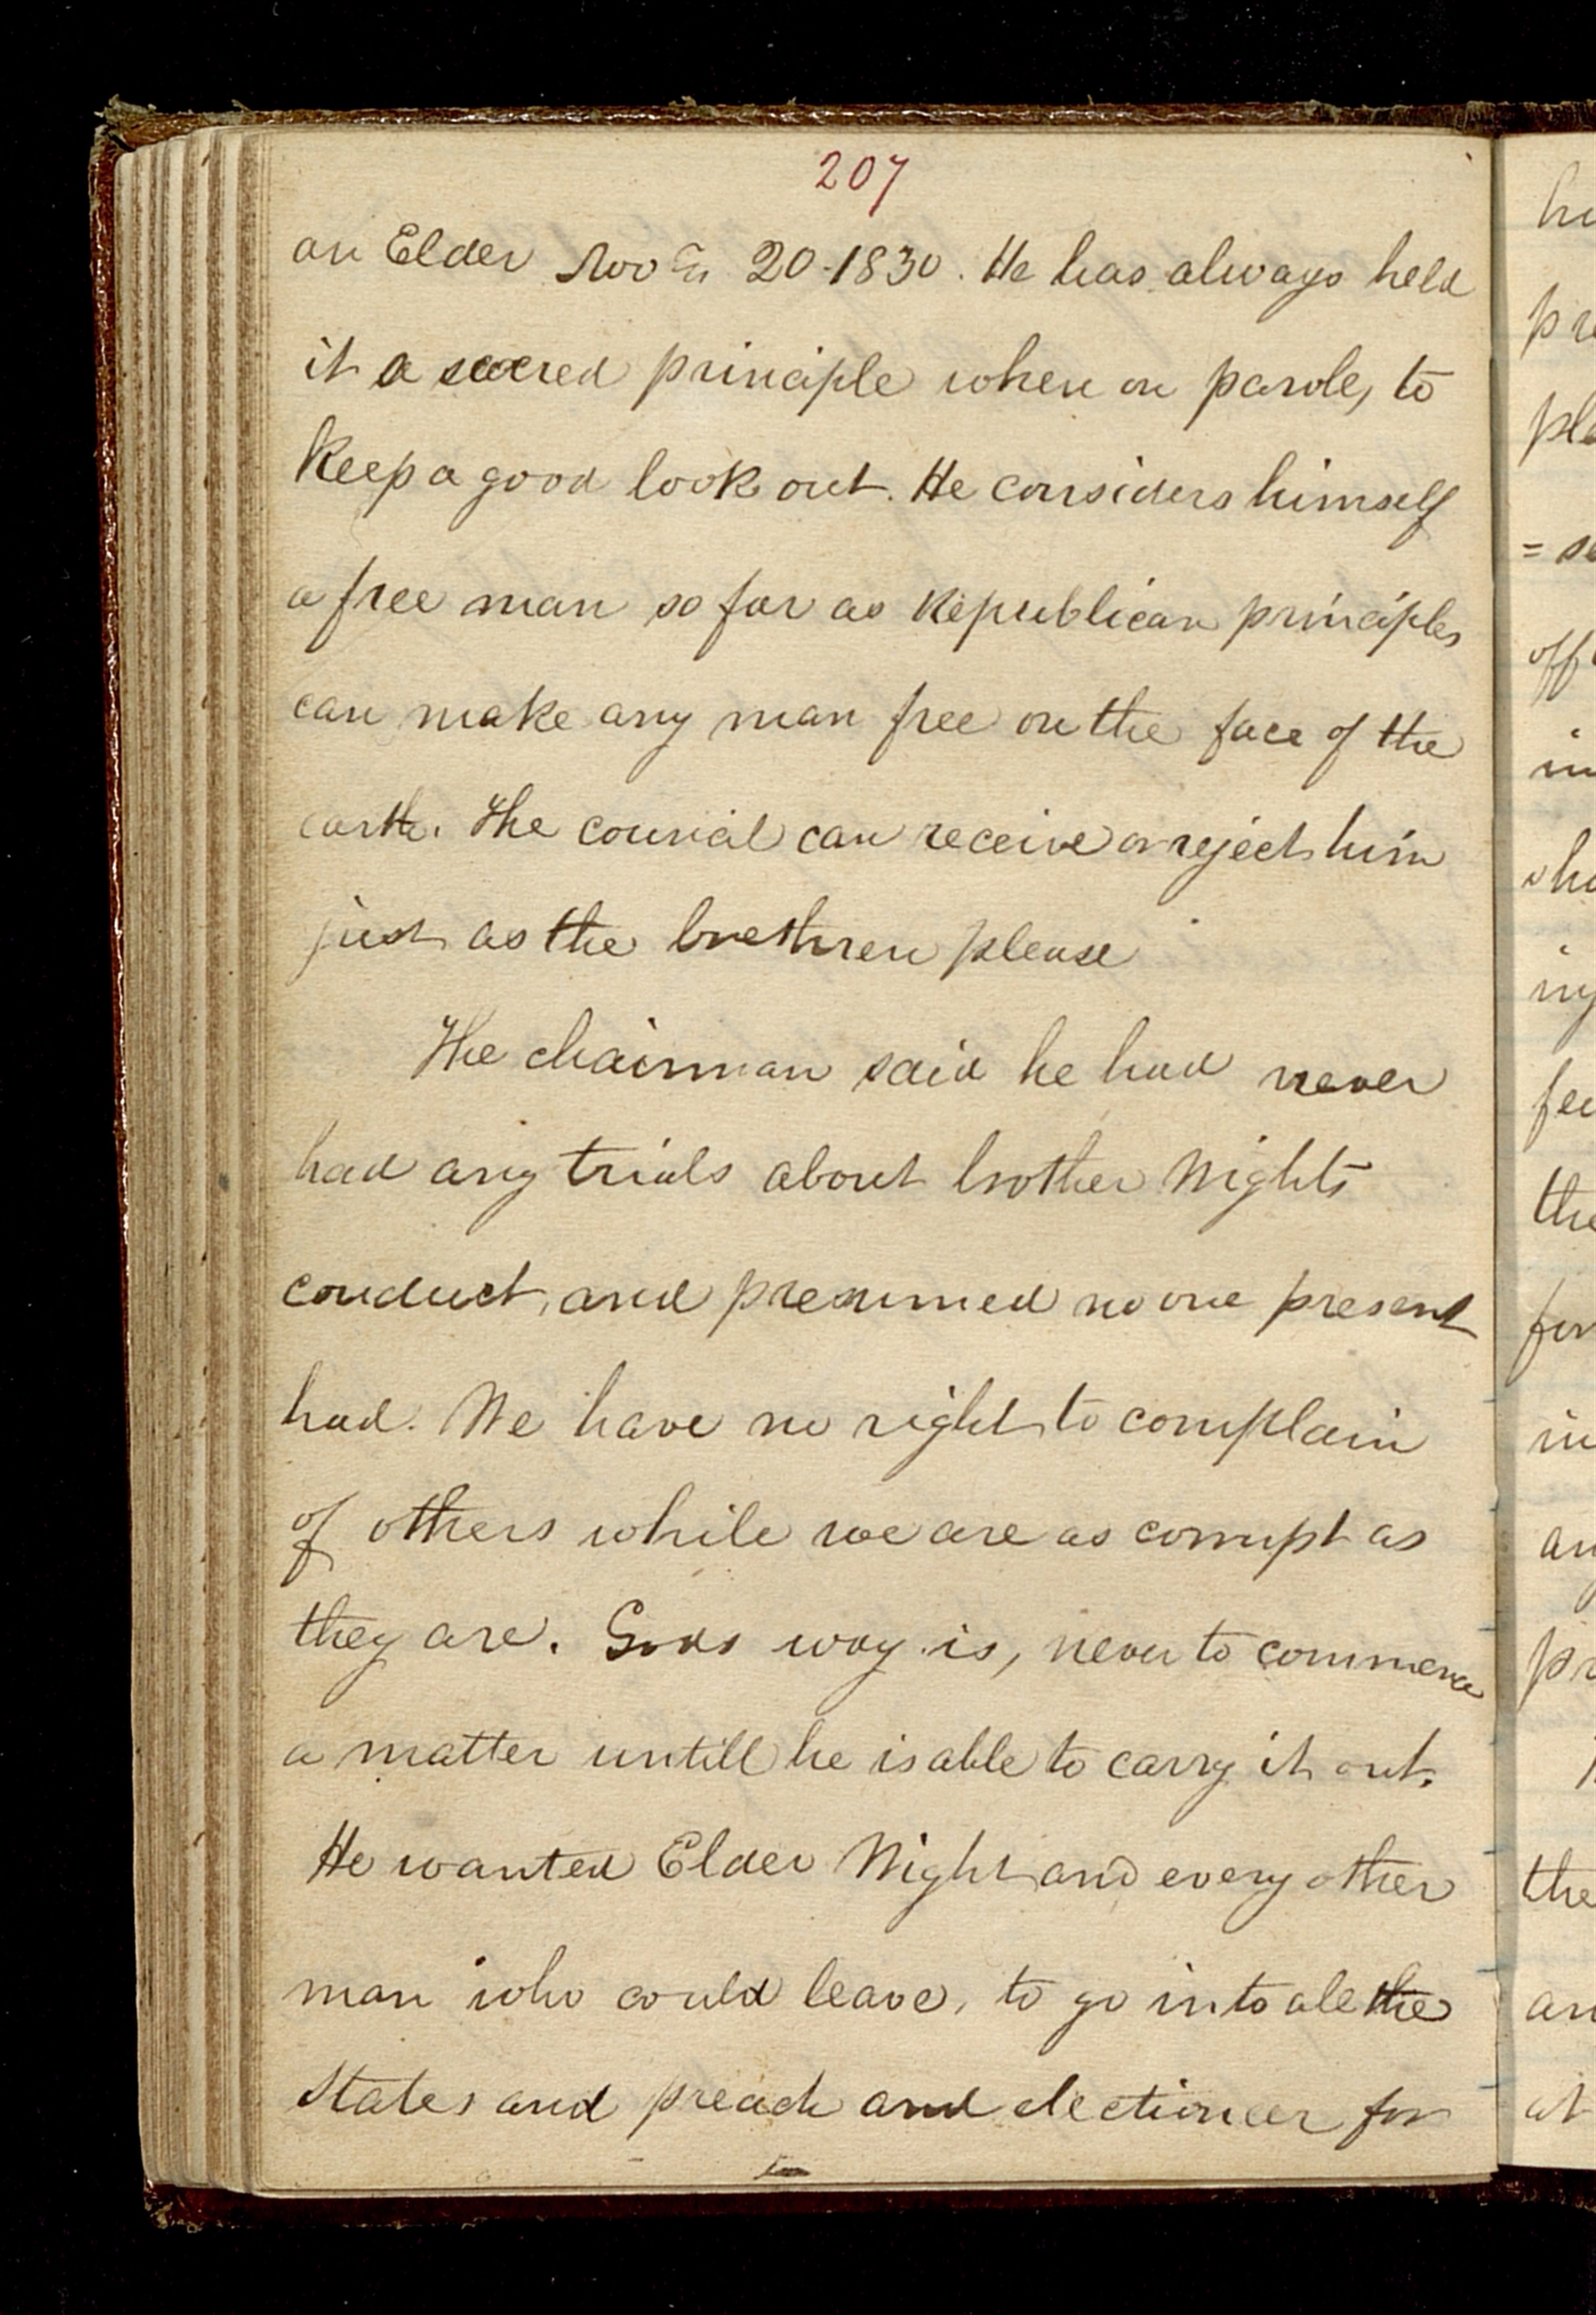 207
an Elder Nov Er 20-1830. He has always held
it a sacred principle when on parole, to
keep a good look out. He considers himself
a free man so far as Republican principles
can make any man free on the face of the
earth. The council can receive or reject him
just as the brethren please
The chairman said he had never
had any trials about brother Wights
conduct, and presumed no one present
had. We have no right to complain
of others while we are as corrupt as
they are. Gods way is, never to commence
a matter untill he is able to carry it out.
He wanted Elder Wight and every other
man who could leave, to go into all the
States and preach and electioneer for